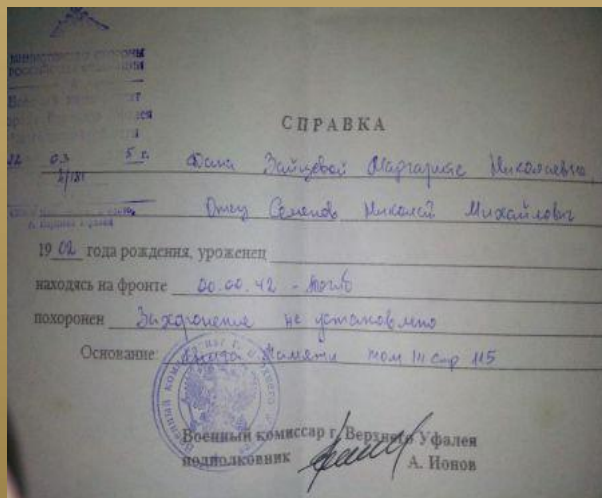 МИНИСТЕРСТВО ОБОРОНЫ
РОССИЙСКОЙ ФЕДЕРАЦИИ
СПРАВКА
03 5 г. Дана Зайцевой Маргарите Николаевне
Отец Семенов Николай Михайлович
1902 года рождения, уроженец
находясь на фронте 00.00.42 -
похоронен Захоронение не установлено
Основание: Книга Памяти том III стр 115
Военный комиссар г. Верхнего Уфалея
подполковник А. Ионов